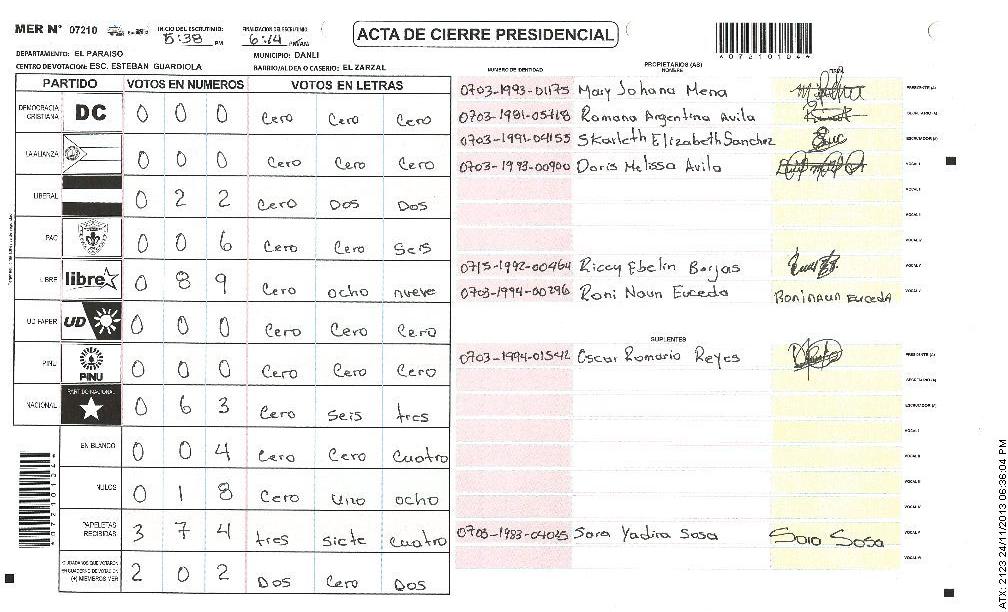 MER N° 07210 INICIO DEL ESCRUTINIO: 5:38 PM FINALIZACION DEL ESCRUTINIO: 6:14 PM/AM
ACTA DE CIERRE PRESIDENCIAL
4072101044
DEPARTAMENTO: EL PARAISO MUNICIPIO: DANLI
CENTRO DE VOTACION: ESC. ESTEBAN GUARDIOLA BARRIO/ALDEA O CASERIO: EL ZARZAL
PARTIDO VOTOS EN NUMEROS VOTOS EN LETRAS
DEMOCRACIA CRISTIANA DC 0 0 0 Cero Cero Cero
LA ALIANZA 0 0 0 Cero Cero Cero
LIBERAL 0 2 2 Cero Dos Dos
PAC 0 0 6 Cero Cero Seis
LIBRE libre 0 8 9 Cero ocho nueve
UD FAPER UD 0 0 0 Cero Cero Cero
PINU PINU 0 0 0 Cero Cero Cero
NACIONAL PARTIDO NACIONAL 0 6 3 Cero seis tres
EN BLANCO 0 0 4 Cero Cero cuatro
NULOS 0 1 8 Cero uno ocho
PAPELETAS RECIBIDAS 3 7 4 tres siete cuatro
CIUDADANOS QUE VOTARON EN CUADERNO DE VOTACION (+) MIEMBROS MER 2 0 2 Dos Cero Dos
NUMERO DE IDENTIDAD PROPIETARIOS (AS) NOMBRE FIRMA
0703-1993-01175 Mary Johana Mena PRESIDENTE (A)
0703-1981-05418 Romana Argentina Avila SECRETARIO (A)
0703-1991-04155 Skarleth Elizabeth Sanchez ESCRUTADOR (A)
0703-1993-00900 Doris Melissa Avila VOCAL I
VOCAL II
0715-1992-00464 Riccy Ebelin Borjas VOCAL V
0703-1994-00296 Roni Naun Euceda RONI NAUN EUCEDA
SUPLENTES
0703-1994-01542 Oscar Romario Reyes PRESIDENTE (A)
SECRETARIO (A)
ESCRUTADOR (A)
VOCAL I
VOCAL II
0703-1983-04025 Sara Yadira Sosa Sara Sosa VOCAL V
4072101044
ATX: 2123 24/11/2013 06:36:04 PM